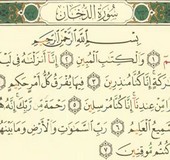 سُورَةُ الدُّخَانِ
بِسْمِ اللَّهِ الرَّحْمَٰنِ الرَّحِيمِ
١ وَالْكِتَٰبِ الْمُبِينِ ٢ إِنَّا أَنزَلْنَٰهُ فِى
إِنَّا كُنَّا مُنذِرِينَ ٣ فِيهَا يُفْرَقُ كُلُّ أَمْرٍ حَكِيمٍ
مِّنْ عِندِنَا إِنَّا كُنَّا مُرْسِلِينَ ٥ رَحْمَةً مِّن رَّبِّكَ إِنَّهُ
الْعَلِيمُ ٦ رَبِّ السَّمَٰوَٰتِ وَالْأَرْضِ وَمَا بَيْنَهُمَا
كُنتُم مُّوقِنِينَ